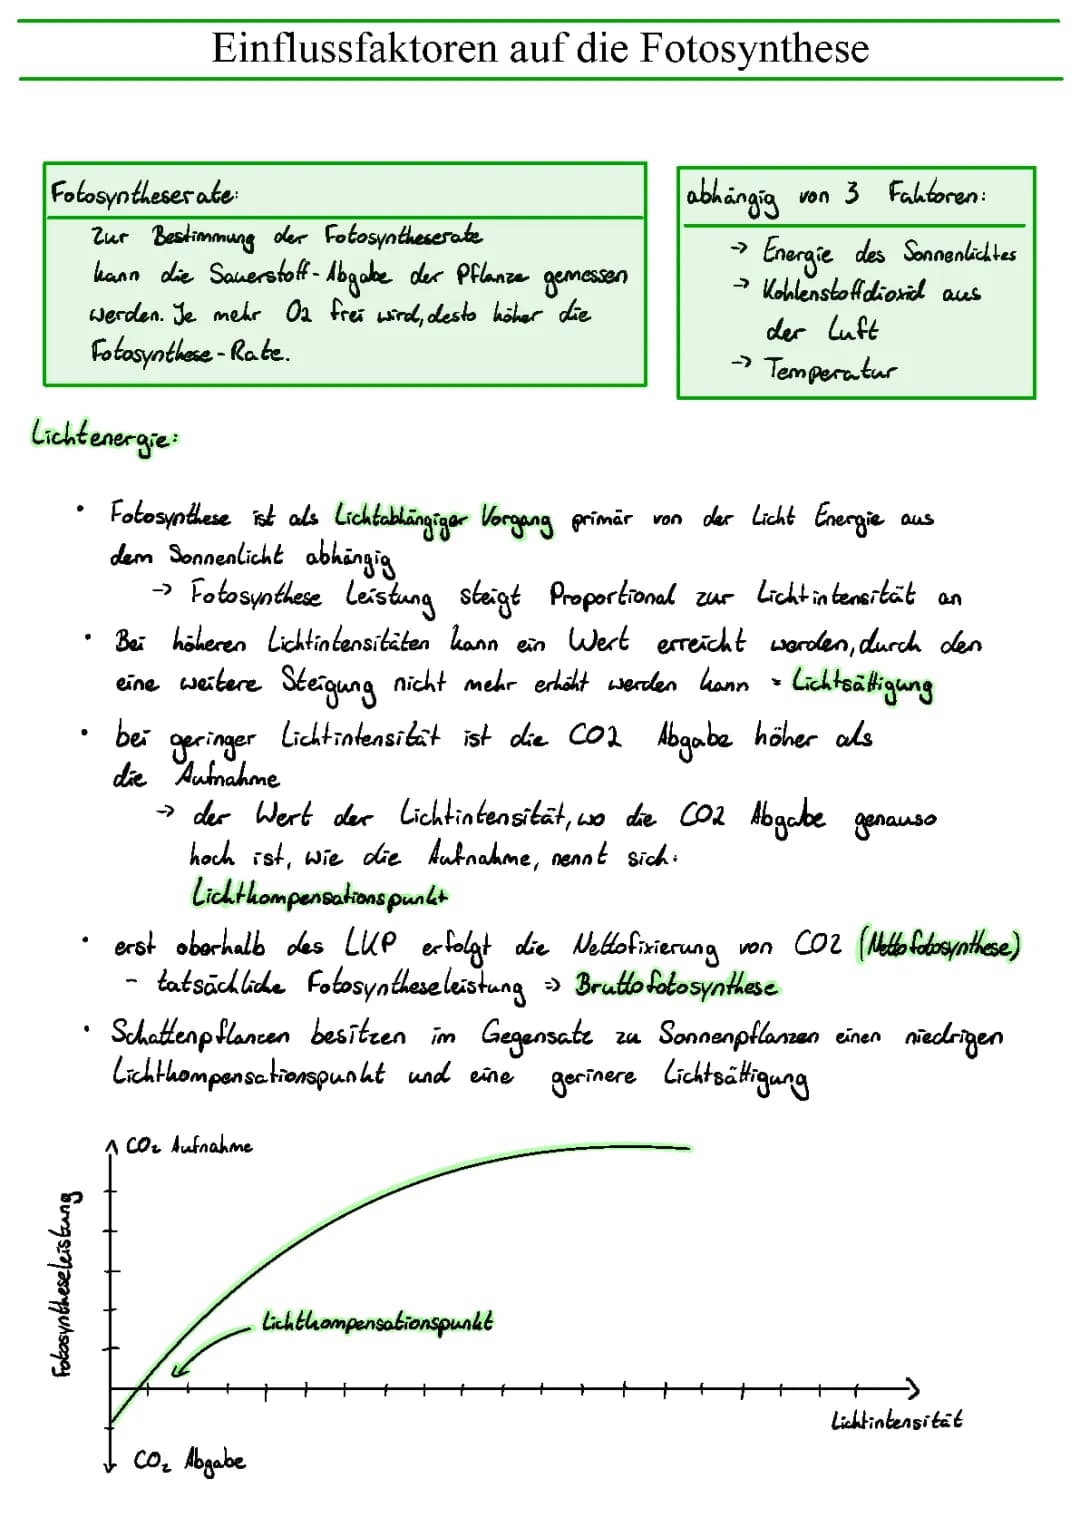 Einflussfaktoren auf die Fotosynthese
Fotosyntheserate:
Zur Bestimmung der Fotosyntheserate
kann die Sauerstoff-Abgabe der Pflanze gemessen
werden. Je mehr O2 frei wird, desto höher die
Fotosynthese-Rate.
abhängig von 3 Faktoren:
→ Energie des Sonnenlichtes
→ Kohlenstoffdioxid aus
der Luft
→ Temperatur
Lichtenergie:
• Fotosynthese ist als Lichtabhängiger Vorgang primär von der Licht Energie aus
dem Sonnenlicht abhängig
→ Fotosynthese Leistung steigt Proportional zur Lichtintensität an
• Bei höheren Lichtintensitäten kann ein Wert erreicht werden, durch den
eine weitere Steigung nicht mehr erhöht werden kann = Lichtsättigung
• bei geringer Lichtintensität ist die CO2 Abgabe höher als
die Aufnahme
→ der Wert der Lichtintensität, wo die CO2 Abgabe genauso
hoch ist, wie die Aufnahme, nennt sich:
Lichtkompensationspunkt
• erst oberhalb des LKP erfolgt die Nettofixierung von CO2 (Nettofotosynthese)
- tatsächliche Fotosyntheseleistung => Bruttofotosynthese
• Schattenpflanzen besitzen im Gegensatz zu Sonnenpflanzen einen niedrigen
Lichtkompensationspunkt und eine gerinere Lichtsättigung
CO₂ Aufnahme
Fotosyntheseleistung
Lichtkompensationspunkt
Lichtintensität
CO₂ Abgabe